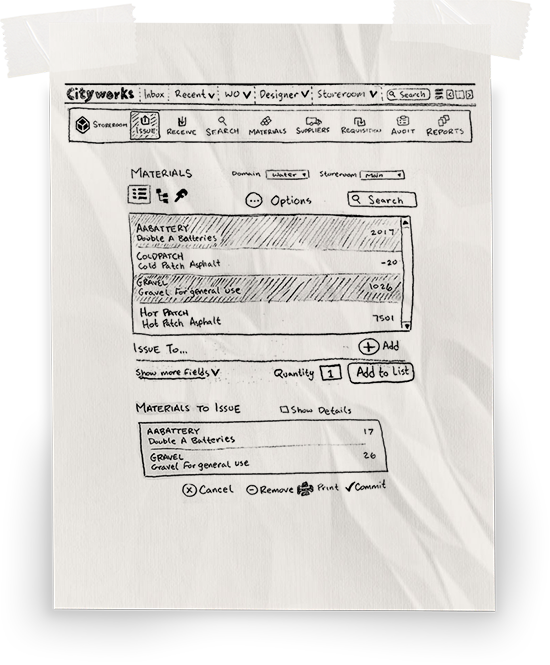 Cityworks Inbox Recent WO Designer Storeroom Search
STOREROOM ISSUE RECEIVE SEARCH MATERIALS SUPPLIERS REQUISITION AUDIT REPORTS
MATERIALS Domain Water Storeroom Main
Options Search
AABATTERY 2017
Double A Batteries
COLDPATCH -20
Cold Patch Asphalt
GRAVEL 1026
Gravel For general use
HOT PATCH 7501
Hot Patch Asphalt
ISSUE TO... Add
Show more fields Quantity 1 Add to List
MATERIALS TO ISSUE Show Details
AABATTERY 17
Double A Batteries
GRAVEL 26
Gravel For general use
Cancel Remove Print Commit